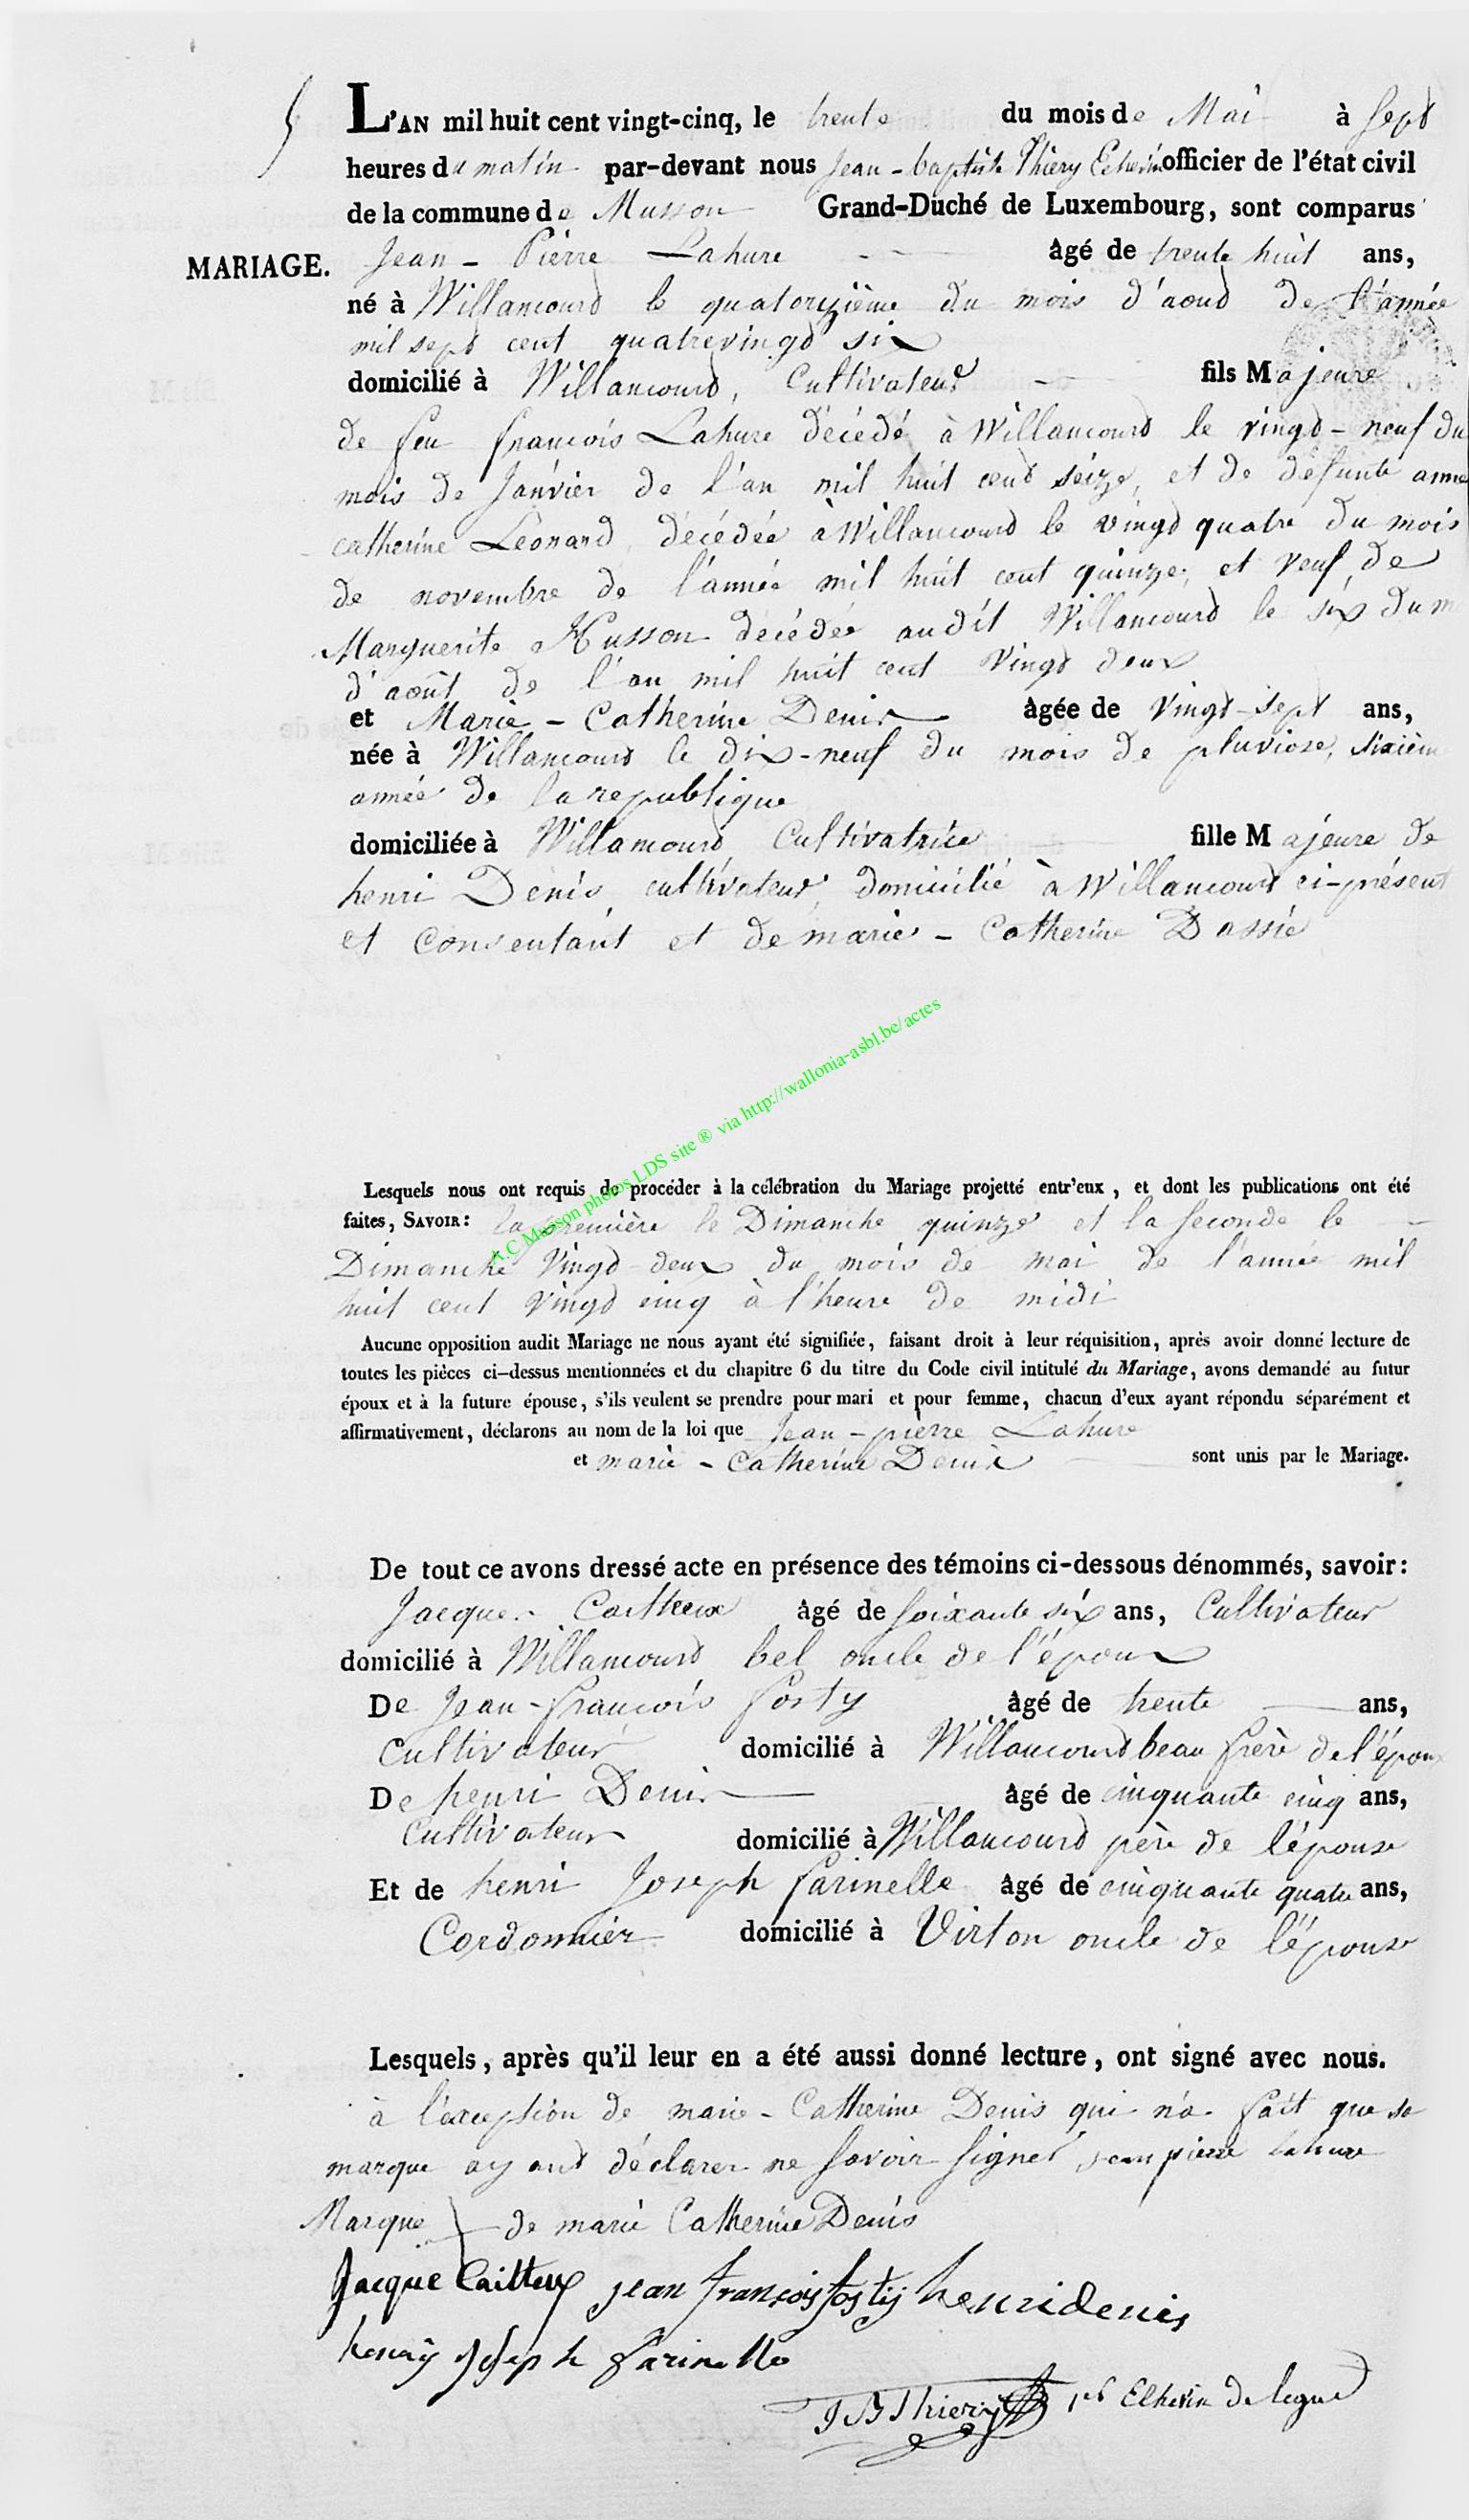 L'AN mil huit cent vingt-cinq, le trente du mois de Mai à Sept
heures du matin par-devant nous Jean-baptiste Thiery Echevin officier de l'état civil
de la commune de Musson Grand-Duché de Luxembourg, sont comparus
MARIAGE. Jean-Pierre Lahure âgé de trente huit ans,
né à Willancourd le quatorzième du mois d'aoud de l'année
mil sept cent quatrevingd six
domicilié à Willancourd, Cultivateur fils Majeure
de feu françois Lahure décédé à Willancourd le vingd-neuf du
mois de Janvier de l'an mil huit cend seize, et de défunte anne
catherine Léonard décédée à Willancourd le vingd quatre du mois
de novembre de l'année mil huit cent quinze, et veuf de
Marguerite Husson décédée audit Willancourd le six du m
d'août de l'an mil huit cent vingd deux
et Marie-Catherine Denis âgée de vingd-sept ans,
née à Willancourd le dix-neuf du mois de pluviose, sixième
année de la republique
domiciliée à Willancourd, Cultivatrice fille Majeure de
henri Denis, cultivateur, domicilié à Willancourd ci-présent
et consentant et de marie-Catherine Dassie
A.C Musson photos LDS site ® via http://wallonia-asbl.be/actes
Lesquels nous ont requis de procéder à la célébration du Mariage projetté entr'eux, et dont les publications ont été
faites, SAVOIR: la première le Dimanche quinze et la seconde le
Dimanche vingd-deux du mois de mai de l'année mil
huit cent vingd cinq à l'heure de midi
Aucune opposition audit Mariage ne nous ayant été signifiée, faisant droit à leur réquisition, après avoir donné lecture de
toutes les pièces ci-dessus mentionnées et du chapitre 6 du titre du Code civil intitulé du Mariage, avons demandé au futur
époux et à la future épouse, s'ils veulent se prendre pour mari et pour femme, chacun d'eux ayant répondu séparément et
affirmativement, déclarons au nom de la loi que Jean-pierre Lahure
et marie-Catherine Denis sont unis par le Mariage.
De tout ce avons dressé acte en présence des témoins ci-dessous dénommés, savoir:
Jacques Caitteux âgé de soixante six ans, Cultivateur
domicilié à Willancourd bel oncle de l'époux
De Jean-françois fosty âgé de trente ans,
Cultivateur domicilié à Willancourd beau frère de l'époux
De henri Denis âgé de cinquante cinq ans,
Cultivateur domicilié à Willancourd père de l'épouse
Et de henri Joseph farinelle âgé de cinquante quatre ans,
Cordonnier domicilié à Virton oncle de l'épouse
Lesquels, après qu'il leur en a été aussi donné lecture, ont signé avec nous.
à l'exception de marie-Catherine Denis qui n'a fait que sa
marque ayant déclarer ne savoir signer jean pierre lahure
Marque de marie Catherine Denis
Jacque Caitteux jean françois fostij henri denis
henry Joseph farinelle
J B Thiery 1er Echevin delegué